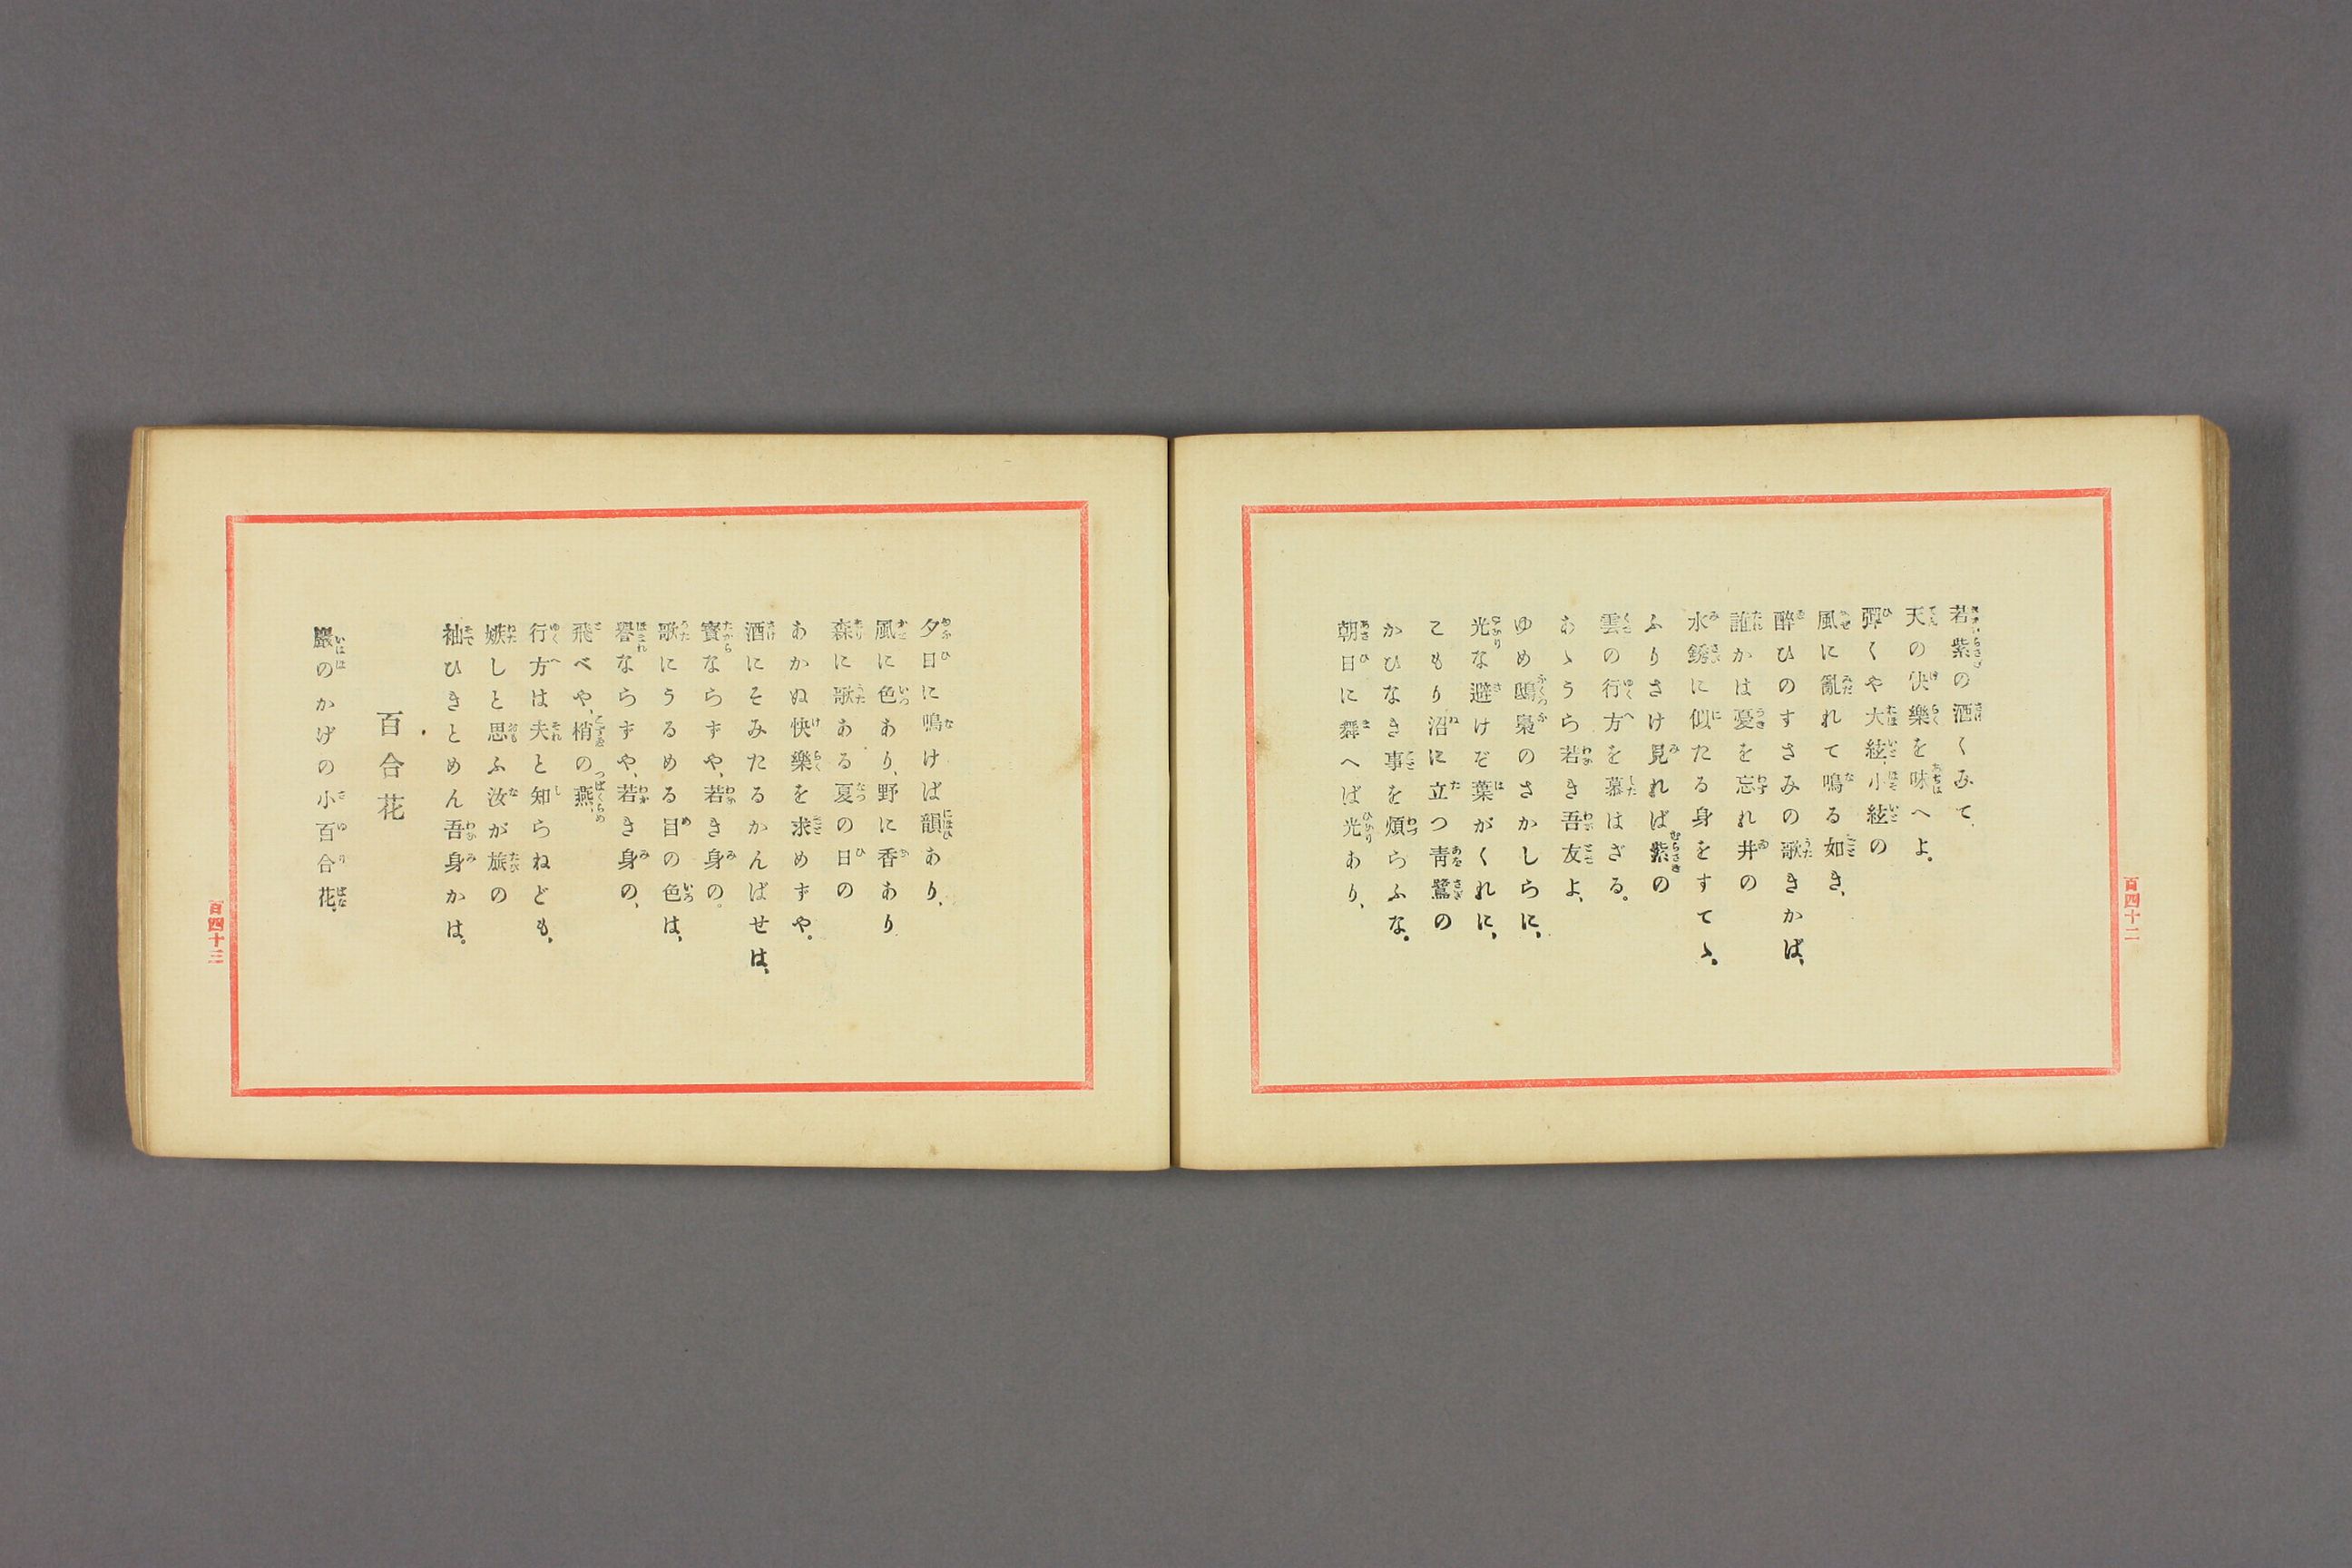 若紫の酒くみて、
天の快樂を味へよ。
彈くや大絃、小絃の
風に亂れて鳴る如き、
醉ひのすさみの歌きかば、
誰かは憂を忘れ井の
水銹に似たる身をすてゝ。
ふりさけ見れば紫の
雲の行方を慕はざる。
あゝうら若き吾友よ、
ゆめ鴟梟のさかしらに、
光な避けぞ葉がくれに、
こもり沼に立つ靑鷺の
かひなき事を煩らふな。
朝日に舞へば光あり、
百四十二
夕日に鳴けば韻あり、
風に色あり、野に香あり
森に歌ある夏の日の
あかぬ快樂を求めずや。
酒にそみたるかんばせは、
寳ならずや、若き身の。
歌にうるめる目の色は、
譽ならずや、若き身の、
飛べや、梢の燕、
行方は夫と知らねども、
嫉しと思ふ汝が旅の
袖ひきとめん吾身かは。
百合花
巖のかげの小百合花、
百四十三